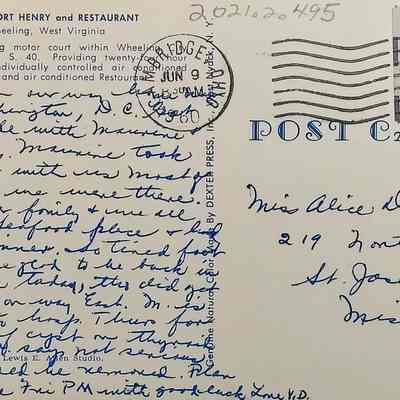 2021.20.495
ORT HENRY and RESTAURANT
eeling, West Virginia
ng motor court within Wheeling
S. 40. Providing twenty-four hour
ndividually controlled air conditioned
and air conditioned Restaurant
CAMBRIDGE, OHIO
JUN 9
AM
1960
POST CA
Genuine Natural Color Made By DEXTER PRESS, Inc., West Nyack, N. Y.
on our way home
hington, D.C. Had
de with Maurine
Maurine took
with us most of
we were there.
family & we all
seafood place & had
inner. So tired foot
glad to be back in
today, tho did get
on way East. M. is
to hosp. Thurs for
of cyst on thyroid
says not serious
ed be removed. Plan
e Fri PM with good luck Love V.D.
Lewis E. Allen Studio.
Miss Alice D
219 Nort
St. Jos
Mis